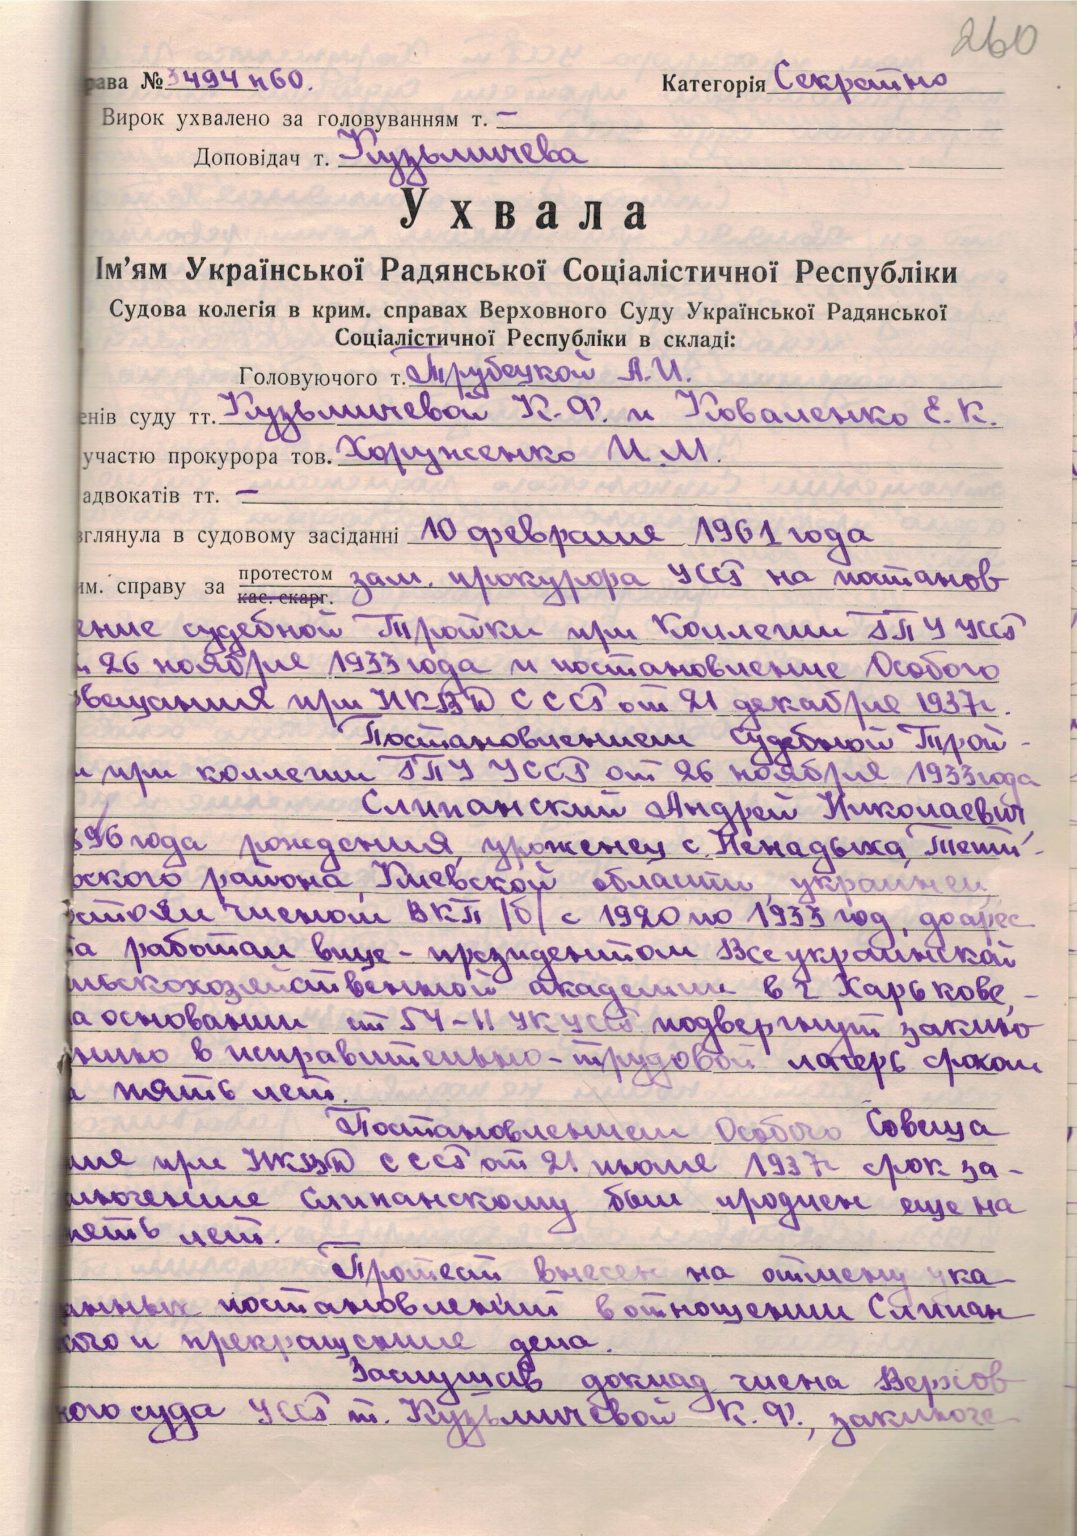 260
рава № 3494 п60. Категорія Секретно
Вирок ухвалено за головуванням т. –
Доповідач т. Кузьмичева
Ухвала
Ім'ям Української Радянської Соціалістичної Республіки
Судова колегія в крим. справах Верховного Суду Української Радянської
Соціалістичної Республіки в складі:
Головуючого т. Трубецкой А.И.
енів суду тт. Кузьмичевой К.Ф. и Коваленко Е.К.
участю прокурора тов. Хоруженко И.М.
адвокатів тт. –
зглянула в судовому засіданні 10 февраля 1961 года
им. справу за протестом кас. скарг. зам. прокурора УССР на постанов
ение судебной Тройки при Коллегии ГПУ УССР
26 ноября 1933 года и постановление Особого
вещания при НКВД СССР от 21 декабря 1937г.
Постановлением судебной Трой-
и при коллегии ГПУ УССР от 26 ноября 1933 года
Слипанский Андрей Николаевич
896 года рождения, уроженец с. Ненадыха, Тети-
ского района, Киевской области, украинец,
стоял членом ВКП/б/ с 1920 по 1933 год, до арес
та работал вице-президентом Всеукраинской
льскохозяйственной академии в г. Харькове, –
а основании ст 54-11 УК УССР подвергнут заклю
ению в исправительно-трудовой лагерь сроком
а пять лет.
Постановлением Особого Совеща
ния при НКВД СССР от 21 июля 1937г срок за-
лючение Слипанскому был продлен еще на
пять лет.
Протест внесен на отмену ука-
анных постановлений в отношении Слипан
кого и прекращение дела.
Заслушав доклад члена Верхов
ного суда УССР т. Кузьмичевой К.Ф., заключе